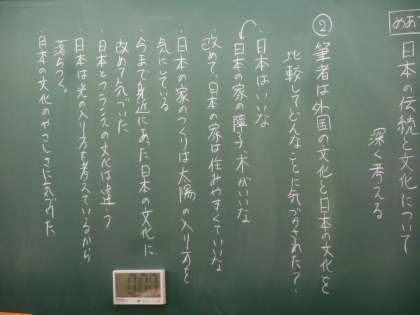 めあ
日本の伝統と文化について
深く考える
② 筆者は外国の文化と日本の文化を
比較してどんなことに気づかされた?
・日本はいいな
日本の家の障子、木がいいな
改めて、日本の家は住みやすくていいな
・日本の家のつくりは太陽の入り方を
気にしている
・今まで身近にあった日本の文化に
改めて気づいた
・日本とフランスの文化は違う
・日本は光の入り方を考えているから
落ちつく。
・日本の文化のやさしさに気づけた